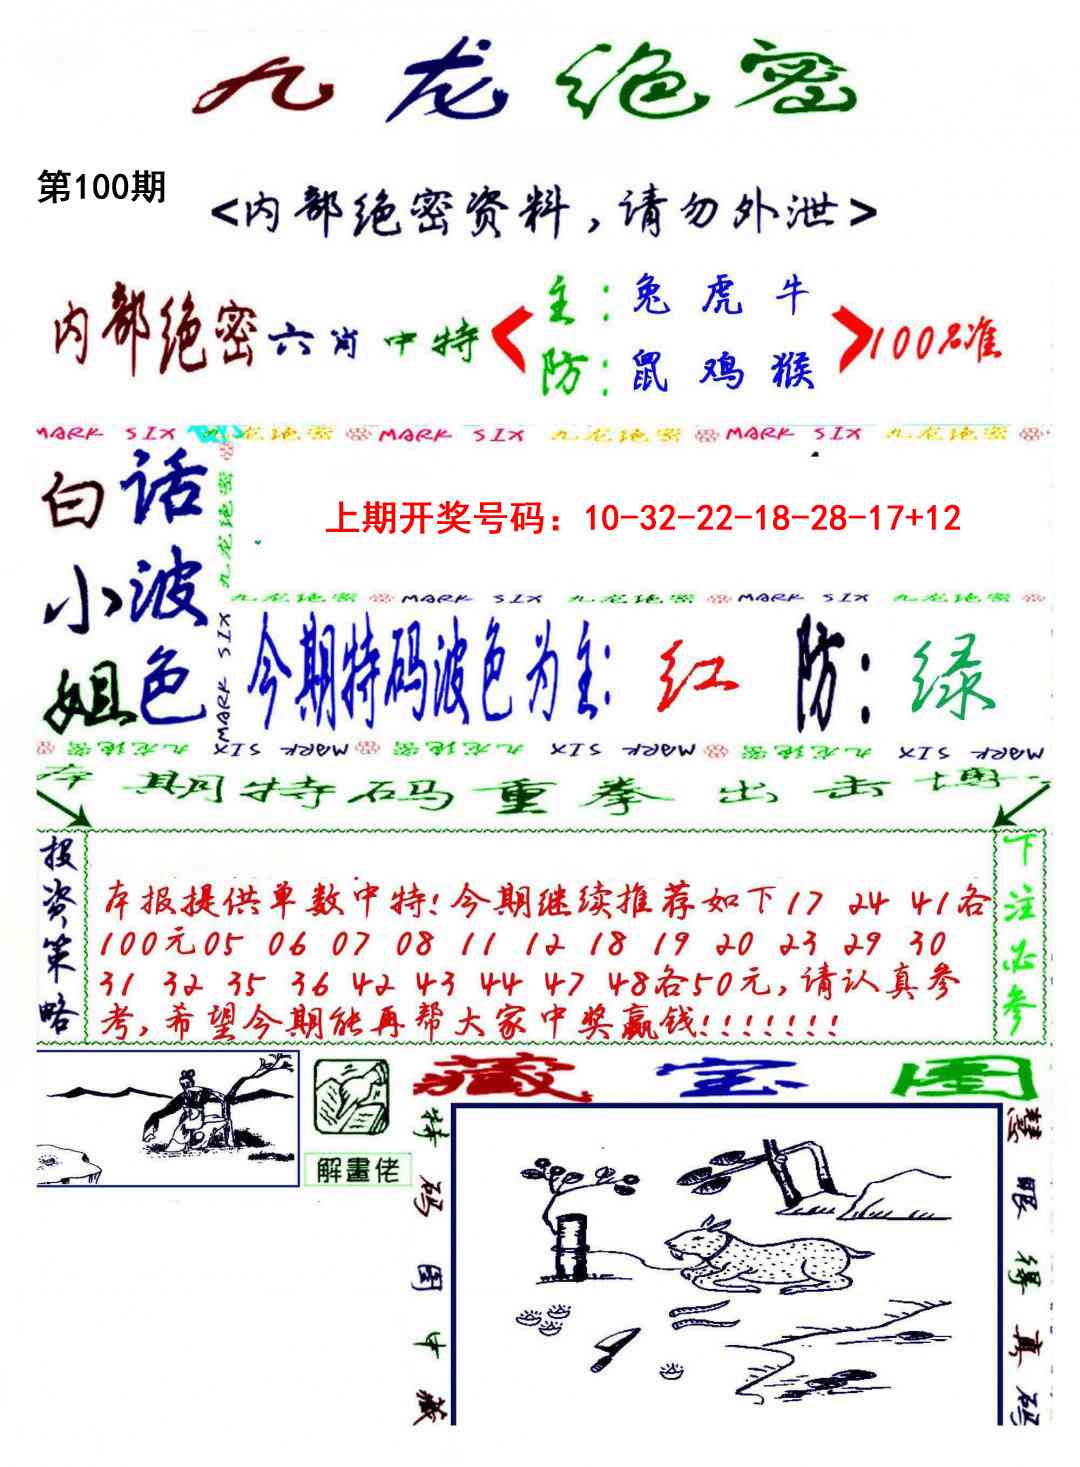 九龙绝密
第100期
<内部绝密资料,请勿外泄>
内部绝密六肖中特
主:兔 虎 牛
防:鼠 鸡 猴
100%准
MARK SIX 九龙绝密 MARK SIX 九龙绝密 MARK SIX 九龙绝密
白话
小波
姐色
九龙绝密
MARK SIX
上期开奖号码：10-32-22-18-28-17+12
九龙绝密 MARK SIX 九龙绝密 MARK SIX 九龙绝密
今期特码波色为主:红 防:绿
九龙绝密 MARK SIX 九龙绝密 MARK SIX 九龙绝密 MARK SIX
本期特码重拳出击博
投资策略
本报提供单数中特!今期继续推荐如下17 24 41各
100元05 06 07 08 11 12 18 19 20 23 29 30
31 32 35 36 42 43 44 47 48各50元,请认真参
考,希望今期能再帮大家中奖赢钱!!!!!!!
下注必参
解畫佬
藏宝图
特码图中藏
慧眼得真码